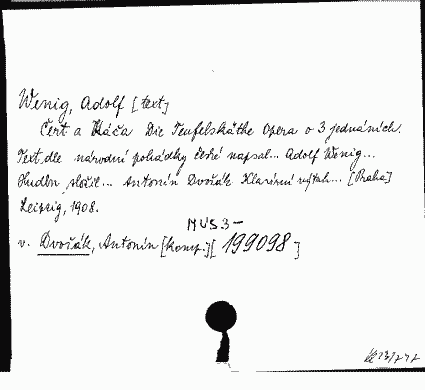 Wenig, Adolf [text]
Čert a Káča Die Teufelskäthe Opera o 3 jednáních.
Text dle národní pohádky české napsal... Adolf Wenig...
Hudbu složil... Antonín Dvořák. Klavírní výtah... [Praha]
Leipzig, 1908.
MUS3-
v. Dvořák, Antonín [komp.] [199098]